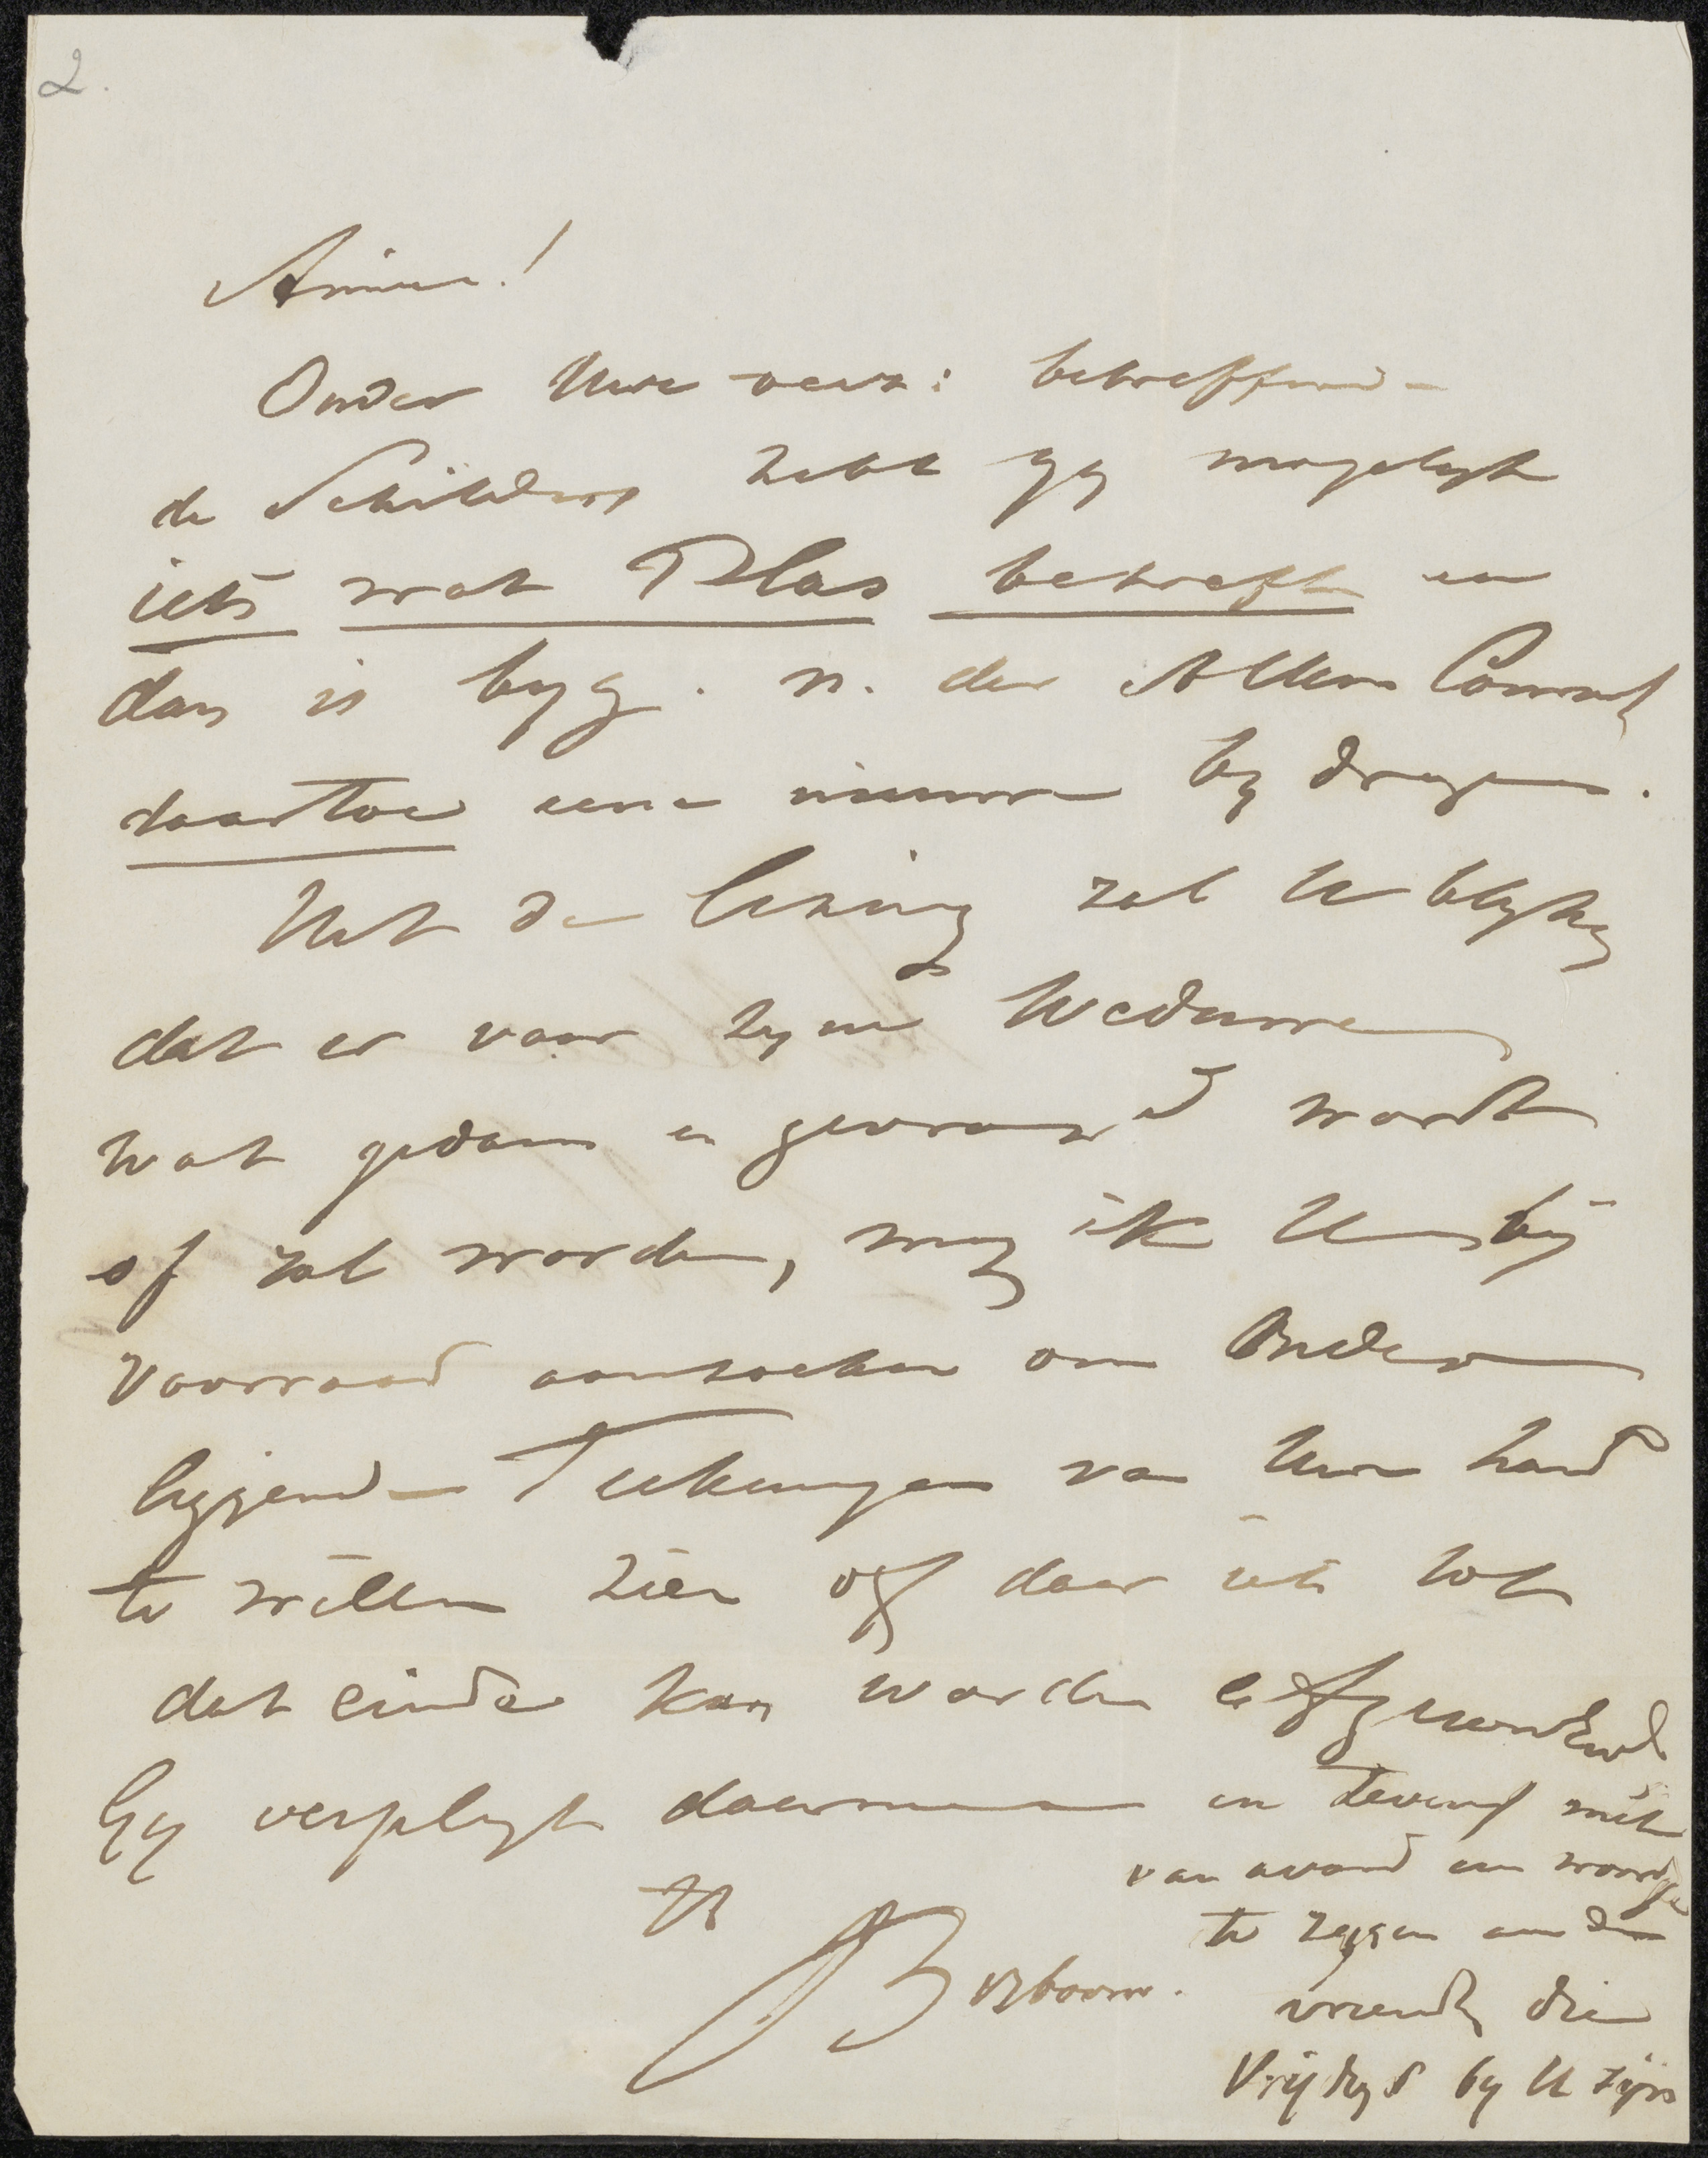 2.
Amice!
Onder Uwe verz: betreffende
de Schilders hebt gy mogelyk
iets wat Plas betreft en
dan is byg. n. der Alkm Courant
daartoe eene nieuwe bydrage.
Uit de lezing zal U blyken
dat er voor zyne Weduwe
wat gedaan en gevraagd wordt
of zal worden, mag ik U bij
voorraad aanzoeken om onder
liggende Teekeningen van Uwe hand
te willen zien of daar iets tot
dat einde kan worden afgezonderd
Gy verpligt daarmee en tevens met
van avond een woordje
te zeggen aan de
vrienden die
Vrijdags by U zijn
JBosboom.